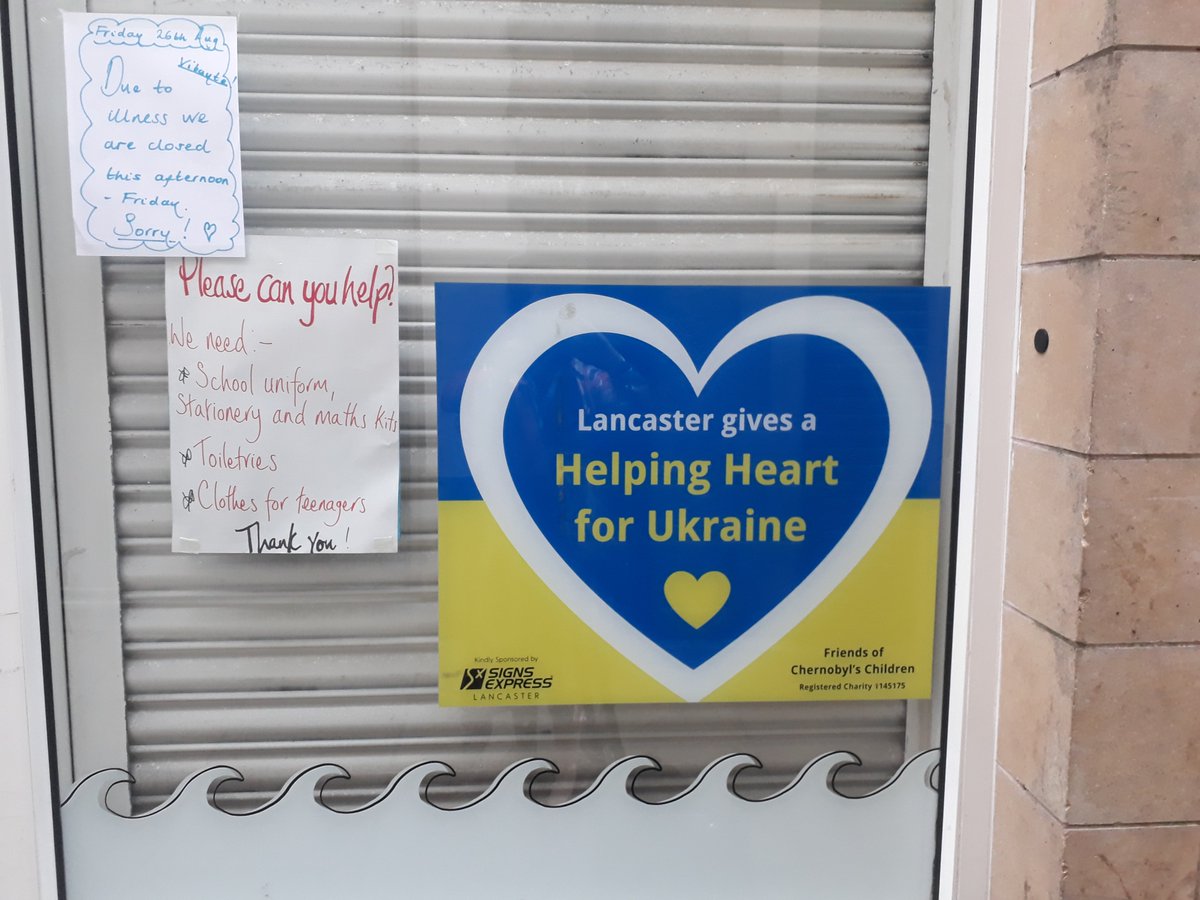 Friday 26th Aug
Due to
illness we
are closed
this afternoon
- Friday.
Sorry!
Please can you help?
We need:-
School uniform,
Stationery and maths kits
Toiletries
Clothes for teenagers
Thank you!
Lancaster gives a
Helping Heart
for Ukraine
Kindly Sponsored by
SIGNS
EXPRESS
LANCASTER
Friends of
Chernobyl's Children
Registered Charity 1145175